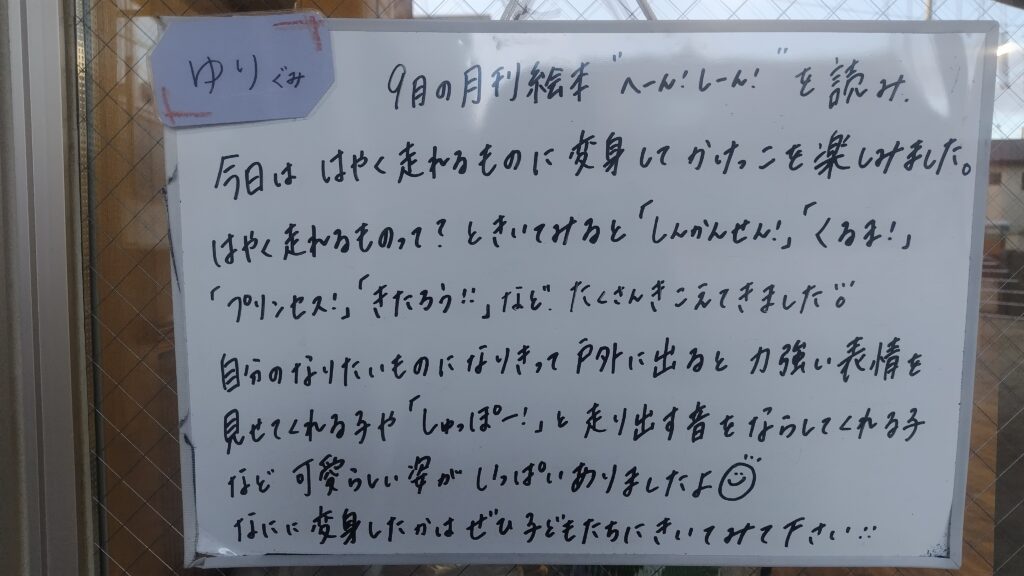 ゆりぐみ
9月の月刊絵本"へーん!しーん!"を読み、
今日は はやく走れるものに変身して かけっこを楽しみました。
はやく走れるものって?ときいてみると「しんかんせん!」「くるま!」
「プリンセス!」「きたろう!!」など、たくさんきこえてきました
自分のなりたいものになりきって戸外に出ると 力強い表情を
見せてくれる子や「しゅっぽー!」と走り出す音をならしてくれる子
など 可愛らしい姿がいっぱいありましたよ
なにに変身したかはぜひ子どもたちにきいてみて下さい